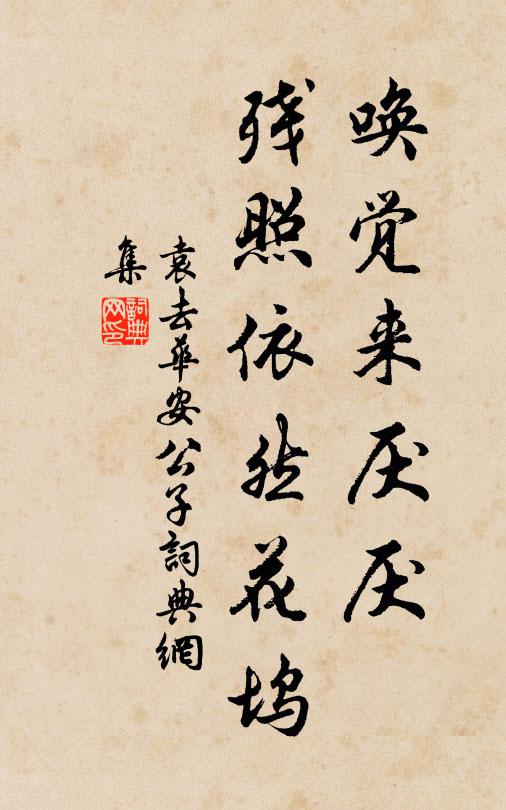 唤觉来厌厌
残照依然花坞
袁去華安公子詞典網
集
詞典網印